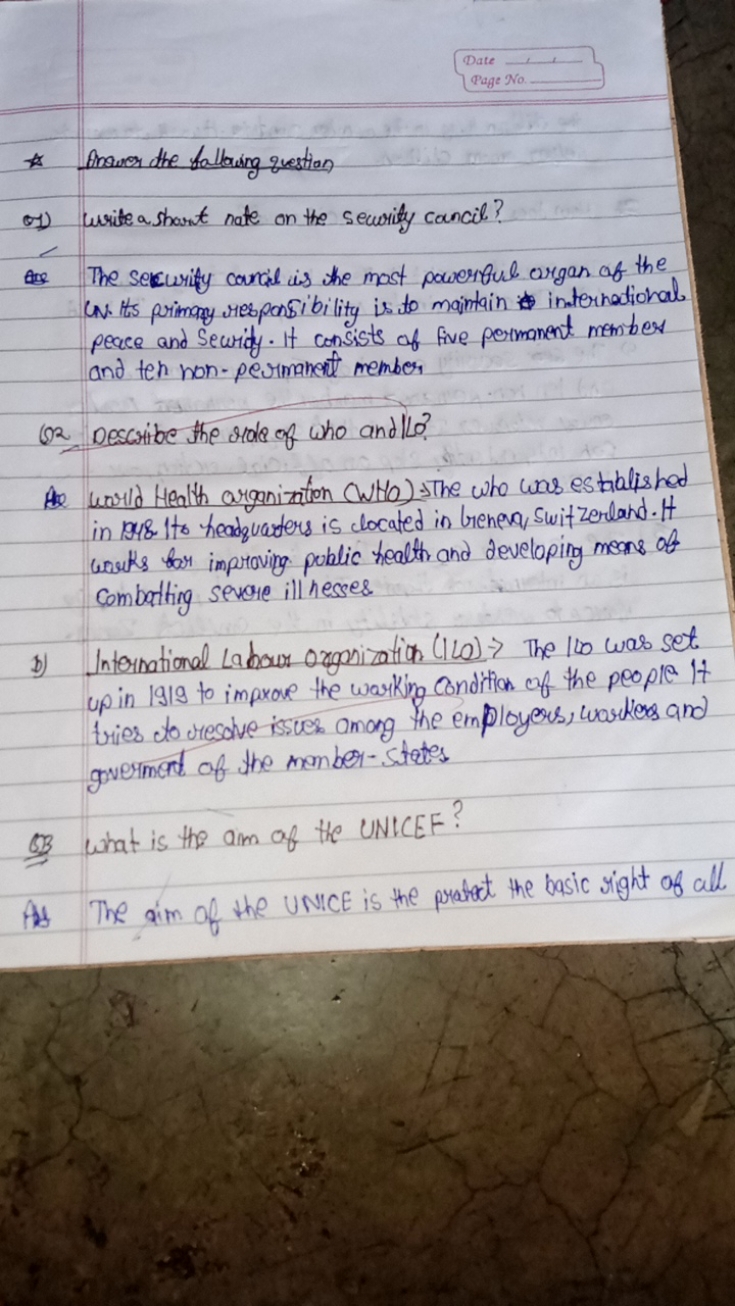 Date
Page No.
☆ Answer the following question
Q1) Write a short note on the security council?
Ans The security council is the most powerful organ of the
UN. Its primary responsibility is to maintain international
peace and Security. It consists of five permanent member
and ten non-permanent member
Q2 Describe the role of who and ILO?
Ans World Health organization (WHO) → The who was established
in 1948 Its headquarters is located in Geneva, Switzerland. It
works for improving public health and developing means of
combatting severe illnesses
b) International Labour organization (ILO) → The ILO was set
up in 1919 to improve the working condition of the people It
tries to resolve issues among the employers, workers and
goverment of the member-states
Q3 What is the aim of the UNICEF?
Ans The aim of the UNICE is the protect the basic right of all